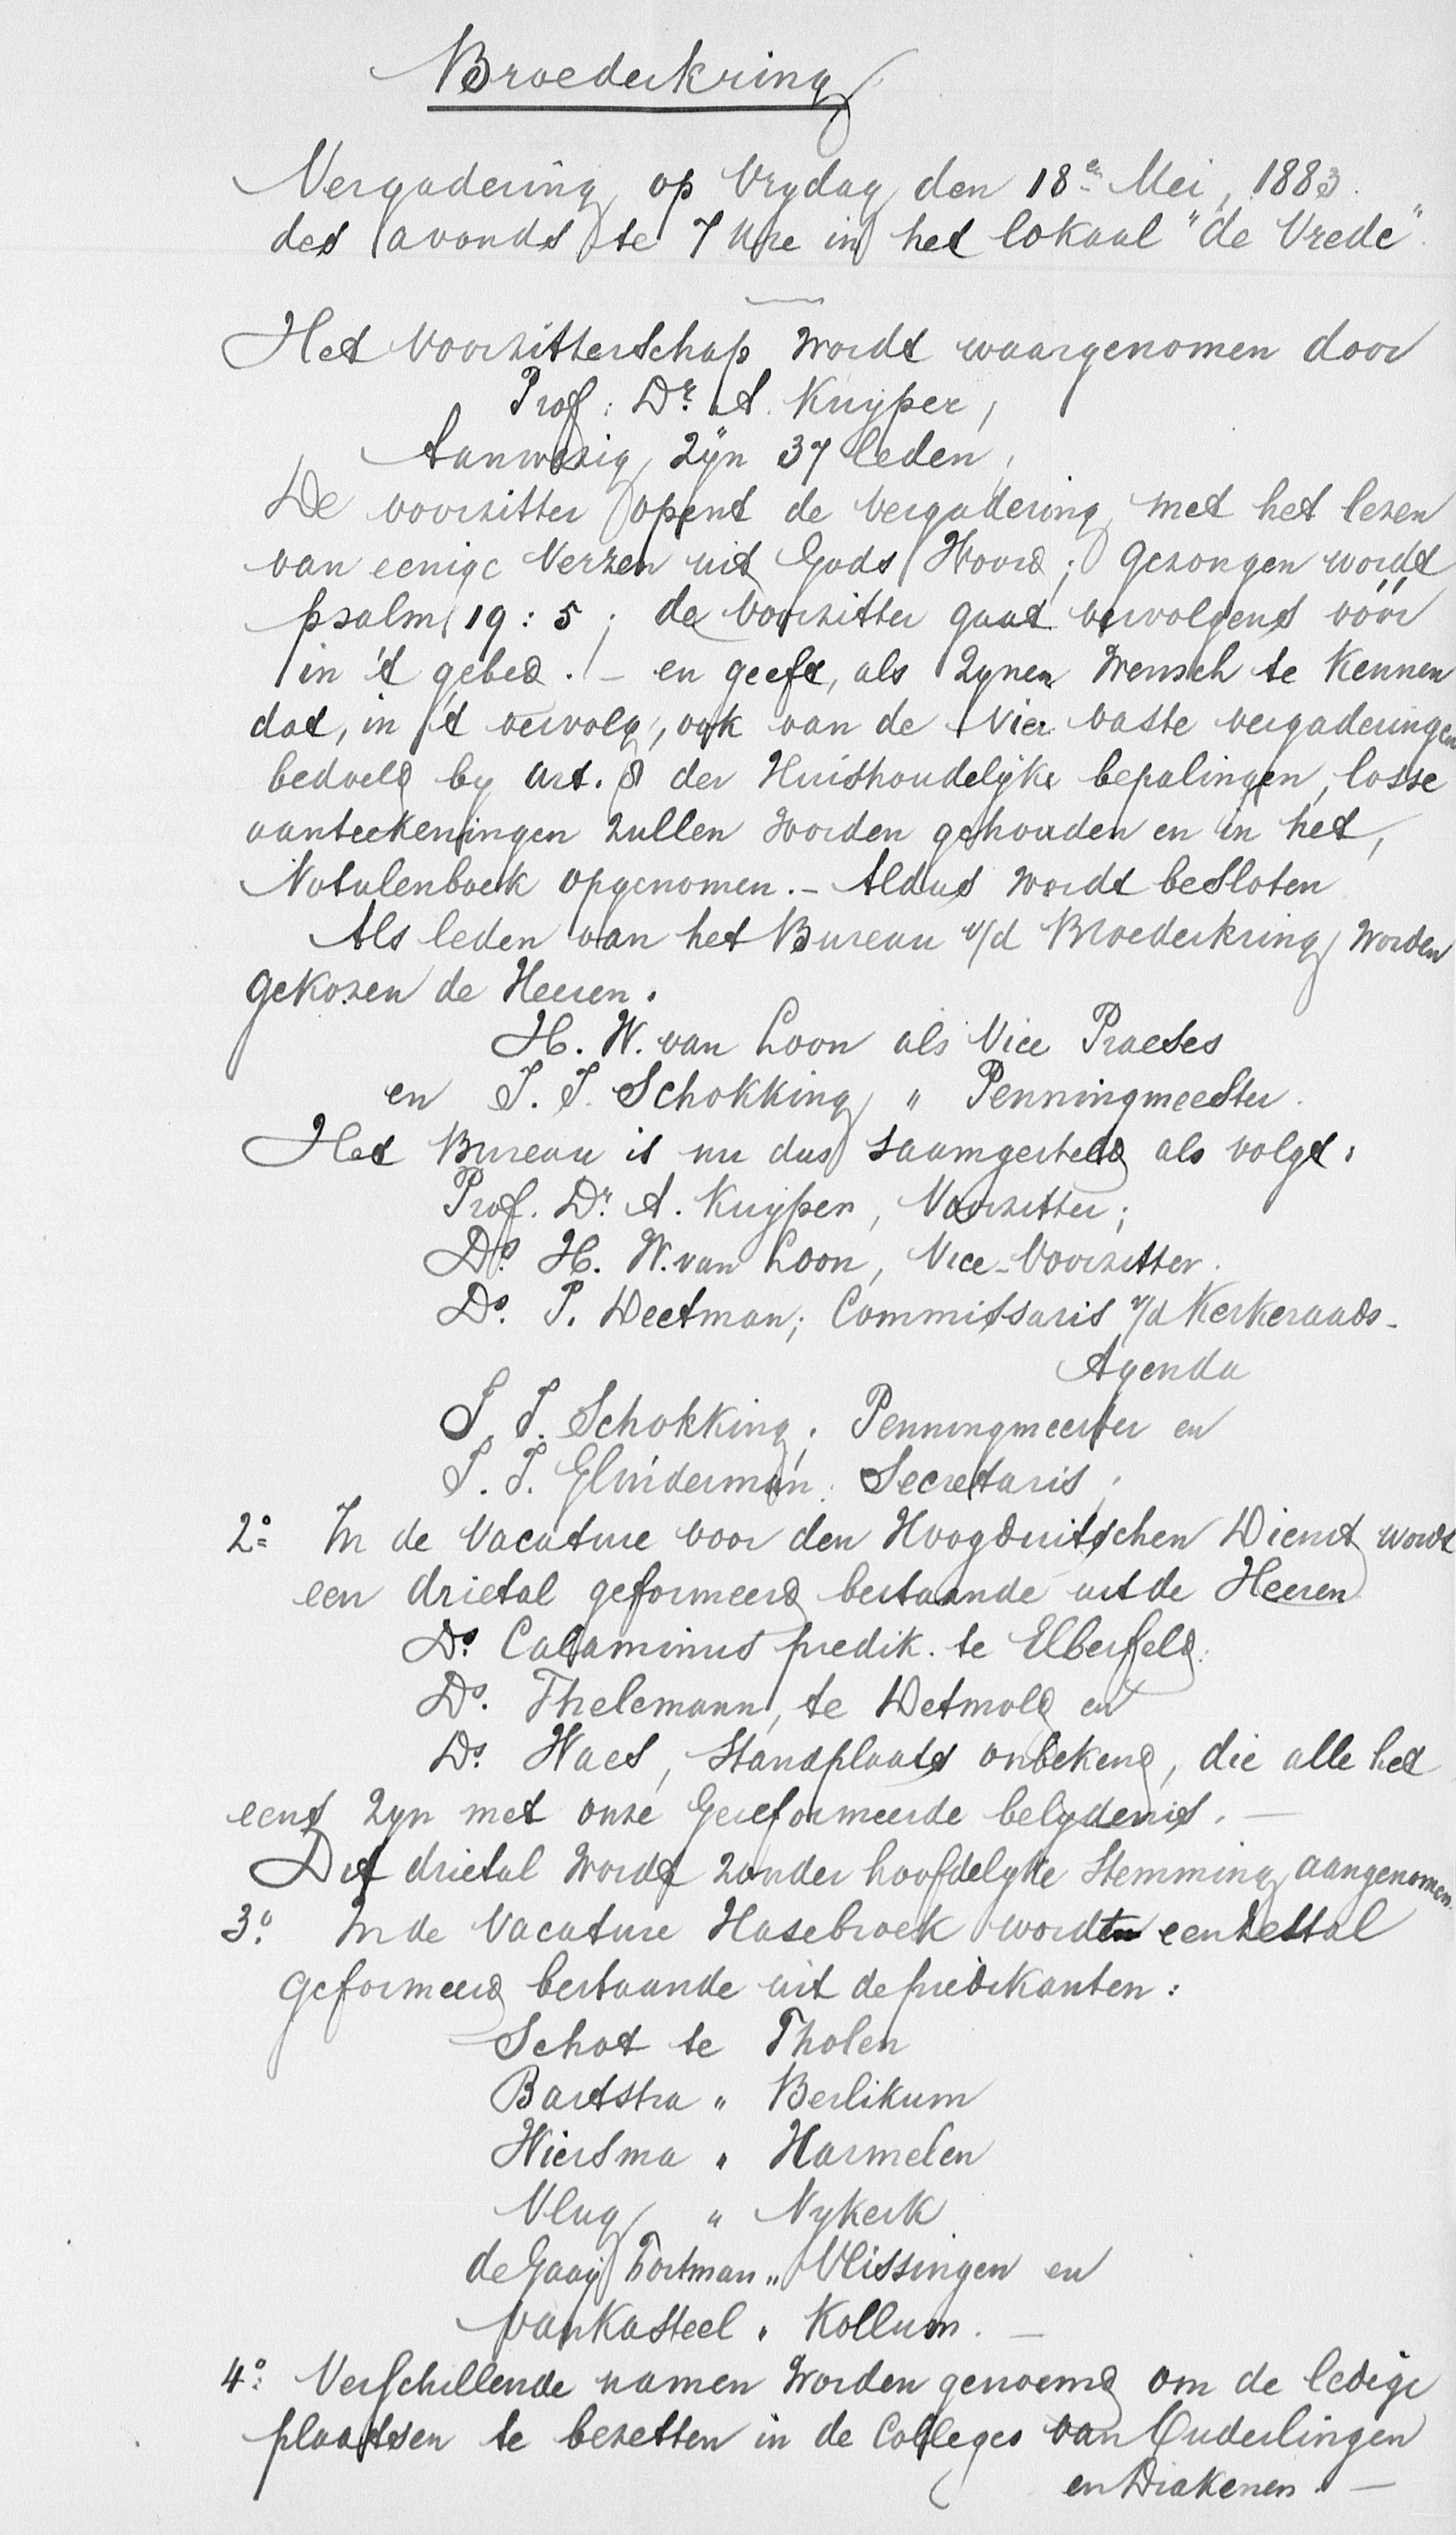 Broederkring
Vergadering op Vrydag den 18en Mei, 1883.
des avonds te 7 Ure in het lokaal "de Vrede".
Het voorzitterschap wordt waargenomen door
Prof: Dr. A. Kuyper,
Aanwezig zijn 37 leden,
De voorzitter opent de vergadering met het lezen
van eenige Verzen uit Gods Woord; Gezongen wordt
psalm 19:5; de voorzitter gaat vervolgens vóór
in 't gebed. - en geeft, als zynen Wensch te Kennen
dat, in 't vervolg, ook van de Vier vaste vergaderingen
bedoeld by art. 8 der Huishoudelijke bepalingen, losse
aanteekeningen zullen worden gehouden en in het,
Notulenboek opgenomen. - Aldus wordt besloten
Als leden van het Bureau v/d Broederkring worden
gekozen de Heeren.
H. W. van Loon als Vice Praeses
en J. J. Schokking " Penningmeester.
Het Bureau is nu dus saamgesteld als volgt:
Prof. Dr. A. Kuyper, Voorzitter;
Ds. H. W. van Loon, Vice-Voorzitter.
Ds. P. Deetman; Commissaris v/d Kerkeraads-
Agenda
J. J. Schokking, Penningmeester en
J. J. Glinderman. Secretaris,
2o In de Vacature voor den Hoogduitschen Dienst wordt
een drietal geformeerd bestaande uit de Heeren
Ds. Calaminus predik. te Elberfeld.
Ds. Thelemann, te Detmold en
Ds. Haes, Standplaats onbekend, die alle het
eens zyn met onze Gereformeerde belydenis. -
Dit drietal wordt zonder hoofdelyke Stemming aangenomen.
3o. In de Vacature Hasebroek wordt een zestal
geformeerd bestaande uit de predikanten:
Schot te Tholen
Bartstra " Berlikum
Wiersma " Harmelen
Vlug " Nykerk
de Gaay Fortman " Vlissingen en
van Kasteel " Kollum. -
4o: Verschillende namen worden genoemd om de ledige
plaatsen te bezetten in de Colleges van Ouderlingen
en Diakenen. -